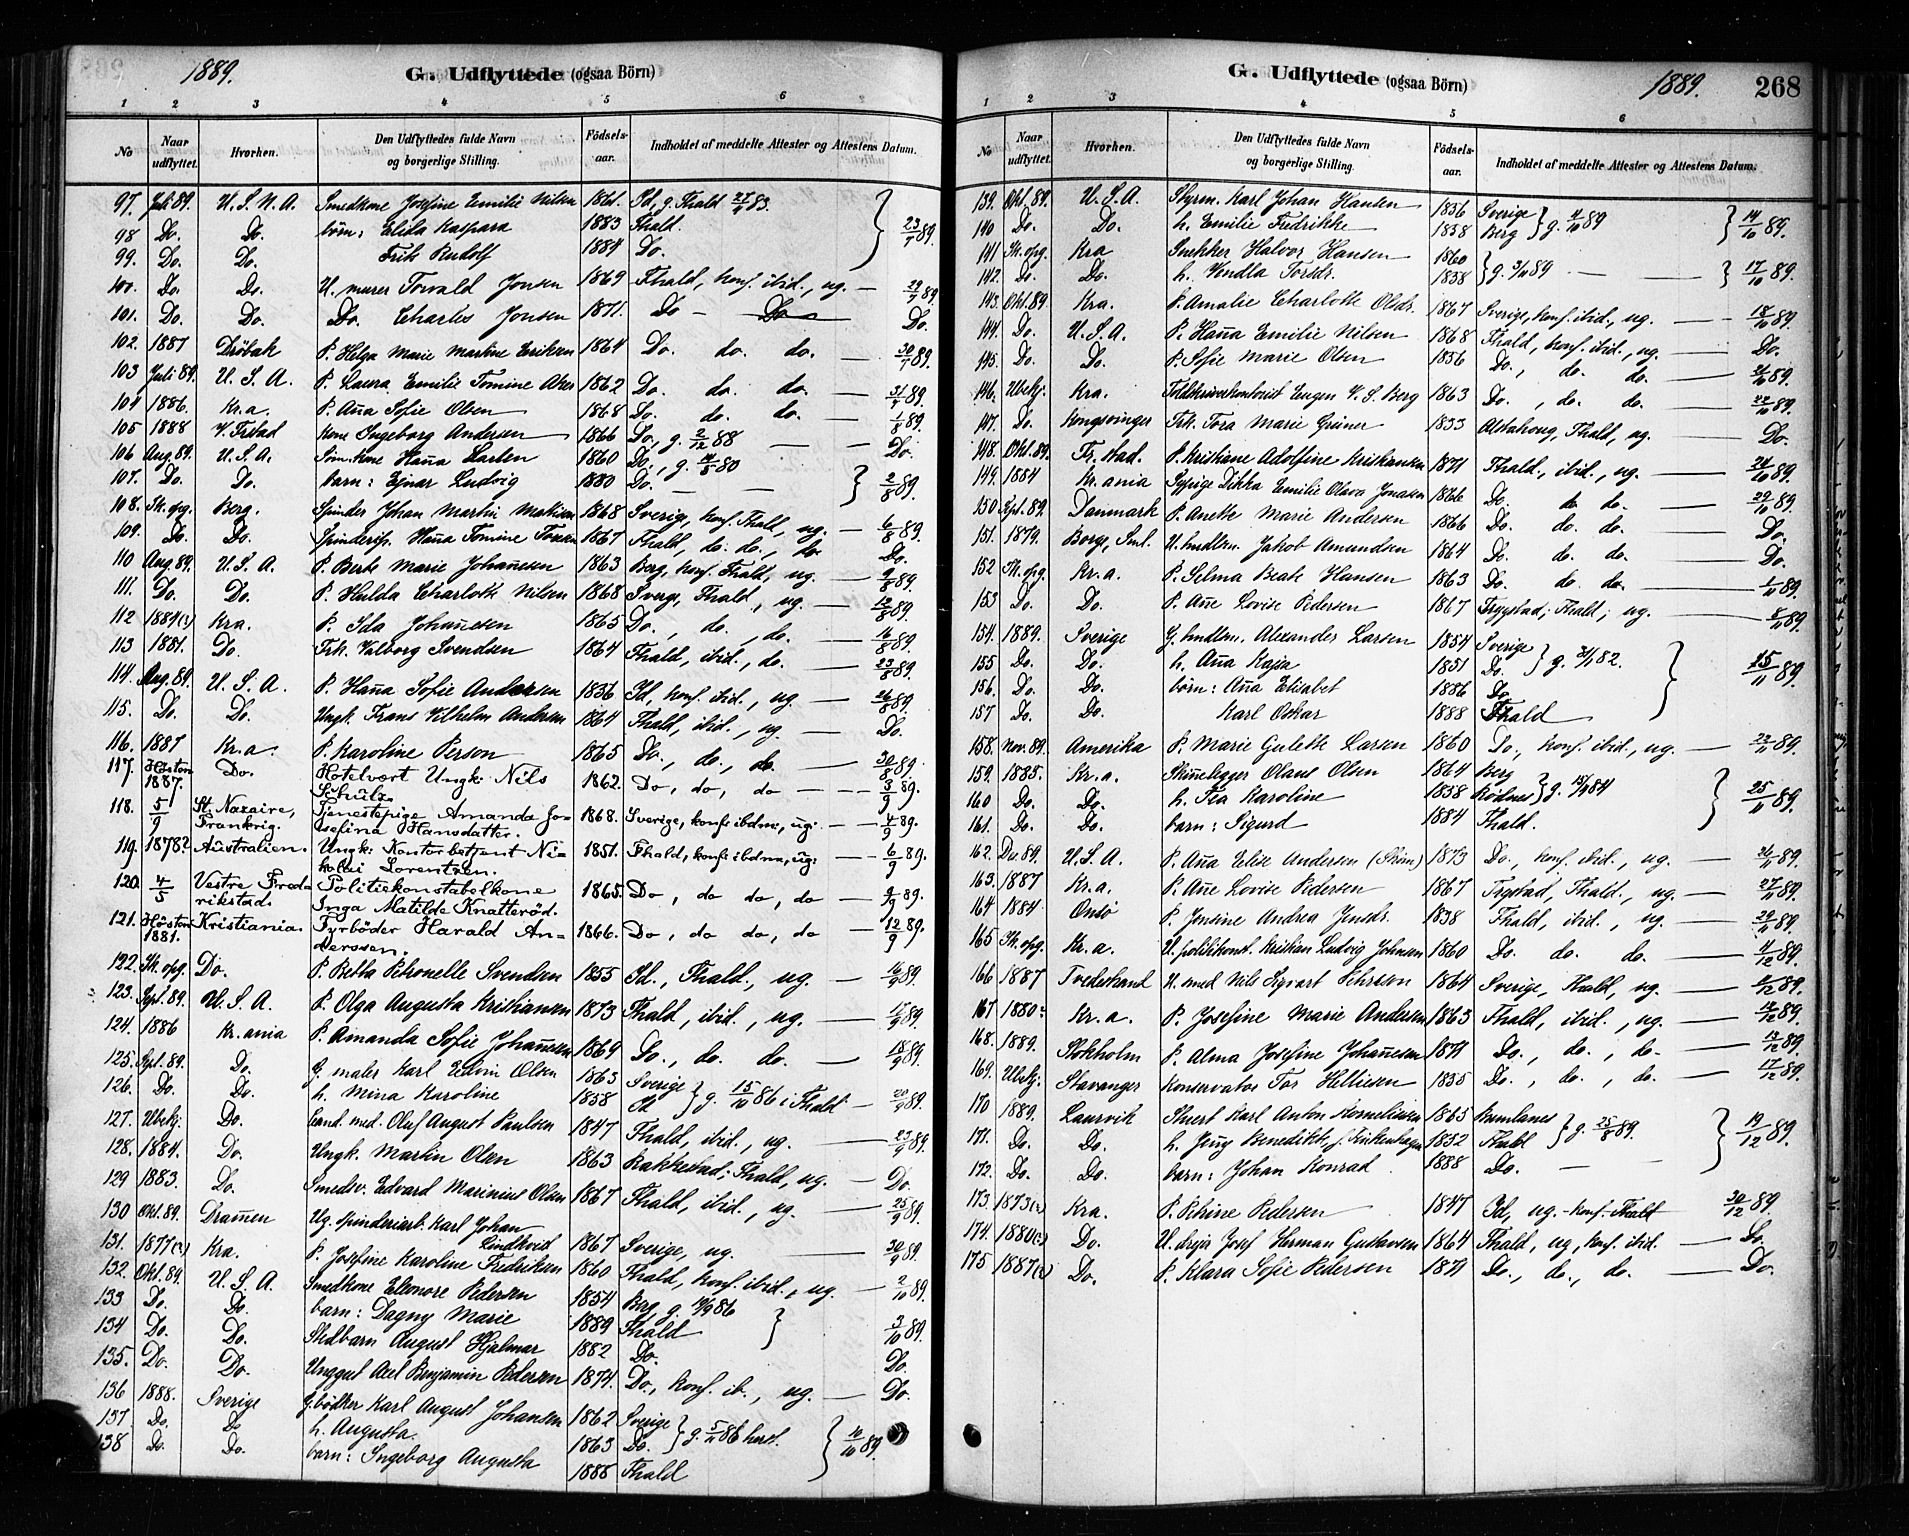 1889.
G. Udflyttede (ogsaa Börn)
1 2 3 4 5 6
No Naar udflyttet. Hvorhen. Den Udflyttedes fulde Navn og borgerlige Stilling. Födsels-aar. Indholdet af meddelte Attester og Attestens Datum.
97. Juli 89. U. S. N. A. Smedkone Josefine Emilie Nilsen 1861. Id, g. Fhald 83.
98 Do. Do. börn: Elida Kaspara 1883 Fhald. } 23/7 89.
99. Do. Do. Frik Rudolf 1884 Do.
100. Do. Do. U. murer Torvald Jonsen 1869 Fhald, konf. ibid., ug. — 29/7 89
101. Do. Do. Do. Charles Jonsen 1871. Do — Do — Do.
102. 1887 Dröbak P. Helga Marie Martine Eriksen 1864 Do. do. do. — 30/7 89.
103 Juli 89. U. S. A. P. Laura Emilie Tomine 1862 Do. do. do. — 31/7 89.
104 1886. Kr.a. P. Aña Sofie Olsen 1868 Do. do. do. — 1/8 89.
105 1888 V. Frstad Kone Ingeborg Andersen 1866 Do., g. 2/12 88 — — Do.
106 Aug. 89. U. S. A. Söm. kone Haña Larsen 1860 Do., g. 80
107. Do. Do. barn: Ejnar Ludvig 1880 Do. — — } 2/8 89.
108. Sk. opg. Berg. Spinder Johan Martin 1868 Sverige, konf. Fhald, ug. — 6/8 89.
109. Do. Do. Spindersk. Haña Tomine 1867 Fhald, do. do., do. Do.
110 Aug 89. U. S. A. P. Berte Marie Johañesen 1863 Berg, konf. Fhald, ug. — 9/8 89.
111. Do. Do. P. Hulda Charlotte Nilsen 1868 Sverge, Fhald, ug. — 12/8 89.
112 1884(?) Kra. P. Ida Johañesen 1865 Do., do., do. — 16/8 89.
113 1881. Do. Frk. Valborg Svendsen 1864 Fhald, ibid., do. — 23/8 89.
114. Aug. 89. U. S. A. P. Haña Sofie Andersen 1836 Id, konf. ibid., ug — 26/8 89.
115. Do. Do. Ungk. Frans Vilhelm Andersen 1864 Fhald, ibid., ug — Do.
116. 1887 Kr.a. P. Karoline Person 1865 Do., do., do. — 30/8 89.
117. Hösten 1887. Do. Hotelvært Ungk. Nils Schulz. 1862. Do, do, do — — 3/9 89.
118. 5/9 St. Nazaire, Frankrig. Tjenestepige Amanda Josefina Hansdatter. 1868. Sverige, konf. ibdm., ug. — 4/9 89.
119. 1878? Australien. Ungk. Kontorbetjent Nikolai Lorentzen. 1851. Fhald, konf. ibdm, ug: — — 6/9 89.
120. 4/5 Vestre Fredrikstad. Politiekonstabelkone Inga Matilde Knatteröd. 1865. Do, do do, do — 9/9 89.
121. Hösten 1881. Kristiania. Fyrböder Harald Anderssen. 1866. Do, do do, do — 12/9 89.
122. Sk. opg. Do. P. Betta Petronelle Svendsen 1855 Id., Fhald., ug. — 16/9 89.
123. Sept. 89. U. S. A. P. Olga Augusta Kristiansen 1873 Fhald, ibid., ug. — 17/9 89.
124. 1886 Kr.ania P. Amanda Sofie Johañesen 1869 Do., do. do. — 18/9 89.
125. Sept. 89. Do. G. maler Karl Edvin Olsen 1863 Sverige
126. Do. Do. h. Mina Karoline 1858 } g. 15/10 86 i Fhald — 20/9 89.
127. Ubekj. Do. Cand. med. Oluf August Paulsen 1847 Fhald, ibid., ug. — 23/9 89.
128. 1884. Do. Ungk. Martin Olsen 1863 Rakkestad; Fhald, ug. — Do.
129 1883. Do. Smedsv. Edvard Marinius Olsen 1867 Fhald, ibid., ug. — 25/9 89.
130 Okt. 89. Dramen Ug. spinderiarb. Karl Johan Lindkvist 1867 Sverige, ug. — 30/9 89.
131. 1877(?) Kra. P. Josefine Karoline Fredriksen 1860 Fhald, konf. ibid., ug. — 2/10 89.
132. Okt. 89. U. S. A. Smedkone Eleonore Pedersen 1854 Berg g. 86
133 Do. Do. barn: Dagny Marie 1889 Fhald } 3/10 89.
134 Do. Do. Stedbarn August Hjalmar 1882 Do. Do.
135. Do. Do. Unggut Axel Benjamin Pedersen 1874. Do., konf. ib., ug. — Do.
136 1888. Sverige G. bødker Karl August Johansen 1862 Sverige
137. Do. Do. h. Augusta. 1863 Do. } g. 5/11 86 herst. } 10/10 89.
138 Do. Do. barn: Ingeborg Augusta 1888 Fhald
G. Udflyttede (ogsaa Börn)
1889. 268
1 2 3 4 5 6
No Naar udflyttet. Hvorhen. Den Udflyttedes fulde Navn og borgerlige Stilling. Födsels-aar. Indholdet af meddelte Attester og Attestens Datum.
139. Okt. 89. U. S. A. Styrm. Karl Johan Hansen 1856 Sverige
140 Do. Do. h. Emilie Fredrikke 1858 Berg } g. 4/10 89 } 14/10 89.
141 Sk. opg. Kra Snekker Halvor Hansen 1860
142. Do. Do. h. Vendla Torsdr. 1858 } g. 89 — — } 17/10 89.
143. Okt. 89. Kra. P. Amalie Charlotte Olsdr. 1867 Sverige, konf. ibid., ug. — 18/10 89.
144. Do. U. S. A. P. Haña Emilie Nilsen 1868 Fhald, konf. ibid., ug. — Do.
145. Do. Do. P. Sofie Marie Olsen 1856 Do., do. do. — 21/10 89.
146. Ubekj. Kra. Toldskriverkontorist Eugen V. S. Berg 1863 Do., do. do. — 22/10 89.
147. Do. Kongsvinger Frk. Tora Marie Grüner 1833 Alstahoug, Fhald, ug. — Do.
148. Okt. 89. Fr.stad. P. Kristiane Adolfine Kristiansen 1871 Fhald., ibid., ug. — 24/10 89.
149. 1884 Kr.ania Sypige Dikka Emilie Olava Jonasen 1866 Do. do do. — 29/10 89.
150 Sept. 89. Danmark P. Anette Marie Andersen 1866 Do. do. do. — Do.
151. 1879. Borge, Sml. U. hndlbm. Jakob Amundsen 1864 Do. do. do. — Do.
152 Sk. opg. Kr.a. P. Selma Beate Hansen 1863 Do. do. do. — 1/11 89.
153 Do. Do. P. Añe Lovise Pedersen 1867 Trygstad; Fhald; ug. — 8/11 89.
154. 1889. Sverige G. hndlbm. Alexander Larsen 1854 Sverige
155 Do. Do. h. Aña Kajsa 1851 Do. } g. 82. } 15/11 89.
156. Do. Do. börn: Aña Elisabet 1886 Do.
157 Do. Do. Karl Oskar 1888 Fhald
158. Nov. 89. Amerika P. Marie Gulette Larsen 1860 Do., konf. ibid., ug. — 22/11 89.
159. 1885. Kr.a. Skinelegger Olaus Olsen 1864 Berg
160 Do. Do. h. Ida Karoline 1858 Rödnes } g. 84 } 25/11 89.
161. Do. Do. barn: Sigurd 1884 Fhald.
162. Do. 89. U. S. A. P. Aña Elise Andersen 1873 Do., konf. ibid., ug. — 26/11 89.
163. 1887 Kr.a. P. Añe Lovise Pedersen 1867 Trygstad, Fhald, ug. — 27/11 89.
164 1884 Onsö P. Jensine Andrea Jensdr. 1838 Fhald, ibid., ug — 29/11 89.
165 Sk. opg. Kr.a. U. politikonst. Kristian Ludvig Johnsen 1860 Do. do. do. — 4/12 89.
166 1887 Tvedestrand U. smed Nils Sigvart Pehrsson 1864 Sverige, Fhald, ug. — 89.
167 1880? Kr.a. P. Josefine Marie Andersen 1863 Fhald, ibid., ug. — 12/12 89.
168. 1889. Stokholm P. Alma Josefine Johañesen 1871 Do., do., do. — 13/12 89.
169. Ubekj. Stavanger Konservator Tor Helliesen 1855 Do., do., do. — 17/12 89.
170 1889. Laurvik Skuest Karl Anton Korneliussen 1865 Brunlanes
171. Do. Do. h. Jeñy Benedikte, f. Finkenhagen 1852 Fhald } g. 25/8 89. } 19/12 89.
172. Do. Do. barn: Johan Konrad 1888 Do. — —
173. 1873(?) Kra. P. Petrine Pedersen 1847 Id, ug. konf. Fhald 30/12 89.
174. 1880(?) Do. U. dreja Josef Herman Gustavsen 1864 Fhald, ug, konf. ibid. — Do.
175 1887(?) Do. P. Klara Sofie Pedersen 1871 Do., do., do. — Do.